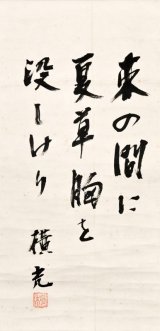 束の間に
夏草胸を
没しけり
横光